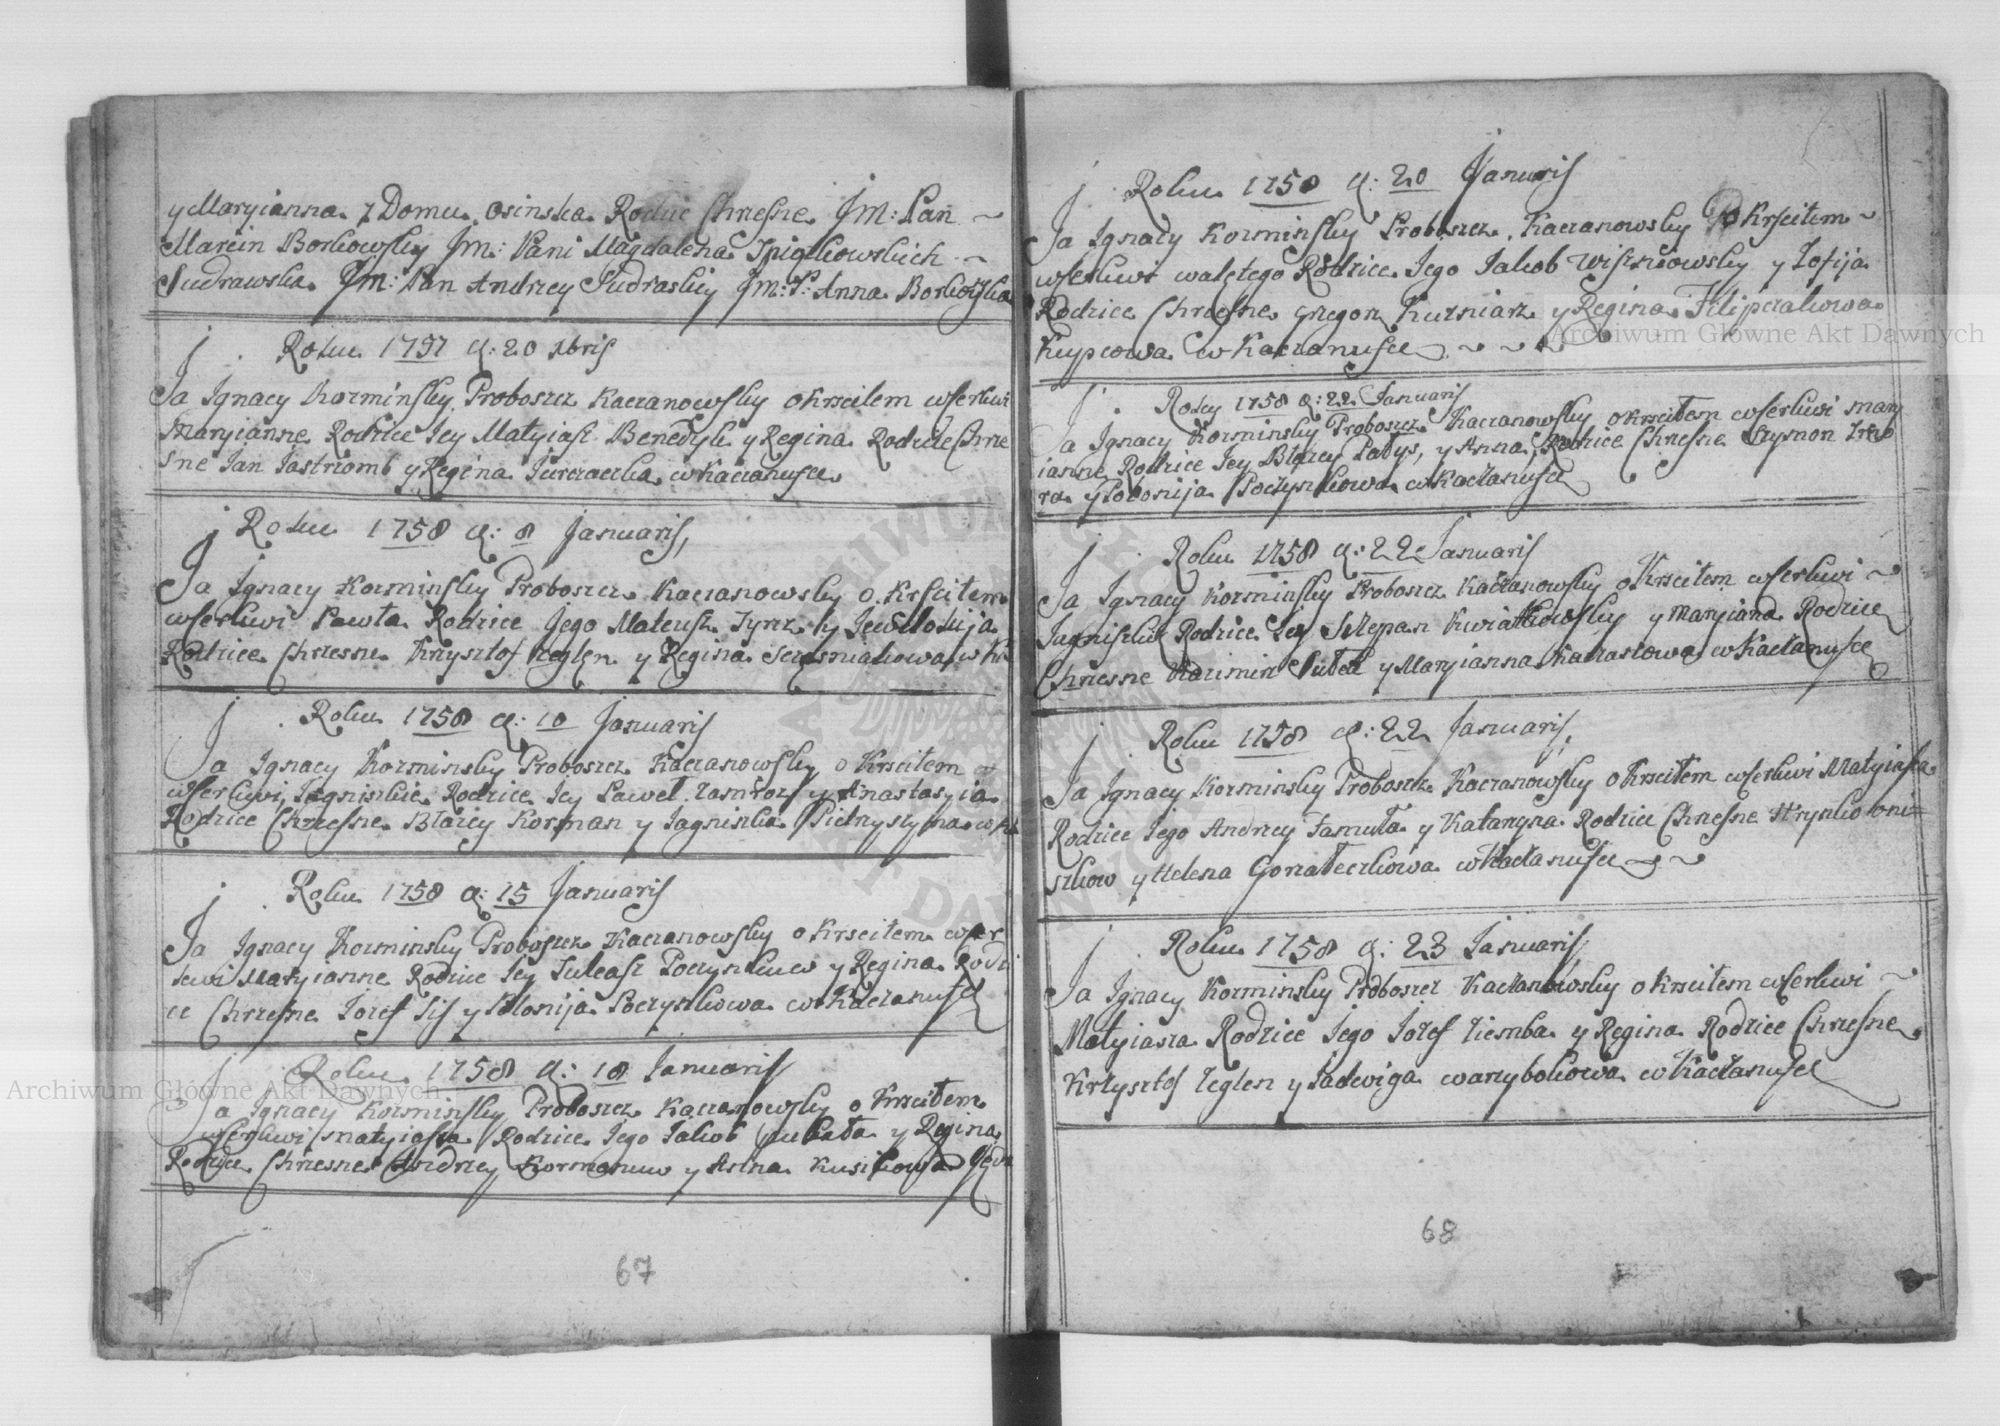 y Maryianna z Domu Osinska Rodzice Chrzesne Jm: Pan
Marcin Borkowsky Jm: Pani Magdalena
Sudrawska Jm: Pan Andrzey Sudrasky Jm: P: Anna
Roku 1757 d: 20 Xbris
Ja Ignacy Kozminsky Proboszcz Kaczanowsky okrscilem w Cerkwi
Maryianne Rodzice Jey Matyiasz Benedyk y Regina Rodzice Chrze
sne Jan Jastrzomb y Regina Jurczaczka w Kaczanufce
Roku 1758 d: 8 Januaris
Ja Ignacy Kozminsky Proboszcz Kaczanowsky o Krscitem
w Cerkwi Pawla Rodzice Jego Mateusz y
Rodzice Chrzesne Krzysztof Ceglen y Regina
Roku 1758 d: 10 Januaris
Ja Ignacy Kozminsky Proboszcz Kaczanowsky o Krscitem
w Cerkwi Jagniszke Rodzice Jey Pawel Zamroz y Anastasyia
Rodzice Chrzesne Blazey Korman y Jagniszka
Roku 1758 d: 15 Januaris
Ja Ignacy Kozminsky Proboszcz Kaczanowsky o Krscitem w Cer
kwi Maryianne Rodzice Jey Lukasz y Regina Rodzi
ce Chrzesne Jozef Lis y Polonija Poczynkowa w Kaczanufce
Roku 1758 d: 18 Januaris
Ja Ignacy Kozminsky Proboszcz Kaczanowsky o Krscitem
w Cerkwi Matyiasza Rodzice Jego Jakob y Regina
Rodzice Chrzesne Andrzey y Anna
67
Roku 1758 d: 20 Januaris
Ja Ignacy Kozminsky Proboszcz Kaczanowsky Okrscitem
w Cerkwi Rodzice Jego Jakob Wiszniowsky y Zofija
Rodzice Chrzesne Grzegorz Kusniarz y Regina Filipczakowa
Kupcowa w Kaczanufce
Roku 1758 d: 22 Januaris
Ja Ignacy Kozminsky Proboszcz Kaczanowsky okrscitem w Cerkwi Mary
ianne Rodzice Jey Blazey Patys, y Anna Rodzice Chrzesne Szymon
y Polonija Poczynkowa w Kaczanufce
Roku 1758 d: 22 Januaris
Ja Ignacy Kozminsky Proboszcz Kaczanowsky okrscitem w Cerkwi
Jagniszke Rodzice Jey Sczepan Kwiatkowsky y Maryiana Rodzice
Chrzesne Kazimirz y Maryianna w Kaczanufce
Roku 1758 d: 22 Januaris
Ja Ignacy Kozminsky Proboszcz Kaczanowsky okrscitem w Cerkwi Matyiasza
Rodzice Jego Andrzey Famula y Katarzyna Rodzice Chrzesne Hrynko Oni
szkow y Helena w Kaczanufce
Roku 1758 d: 23 Januaris
Ja Ignacy Kozminsky Proboszcz Kaczanowsky okrscitem w Cerkwi
Matyiasza Rodzice Jego Jozef Ziemba y Regina Rodzice Chrzesne
Krzysztof Ceglen y Jadwiga w Kaczanufce
68
Archiwum Główne Akt Dawnych
Archiwum Główne Akt Dawnych